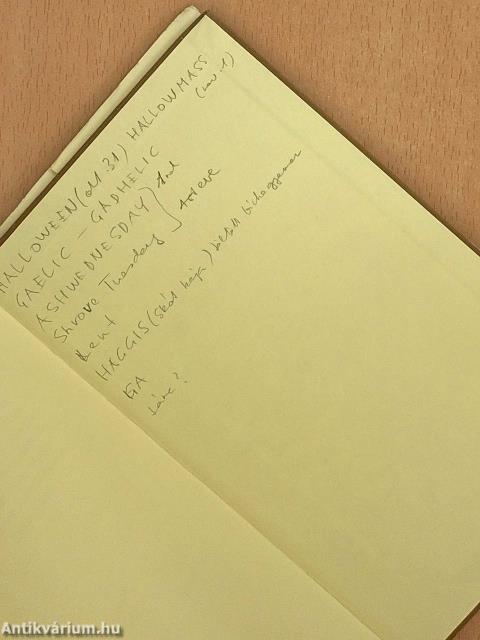 HALLOWEEN (okt. 31) HALLOWMASS
(nov. 1)
GAELIC - GADHELIC
ASHWEDNESDAY
Shrove Tuesday
Lent
HAGGIS (skót kaja) töltött
GA
Antikvárium.hu